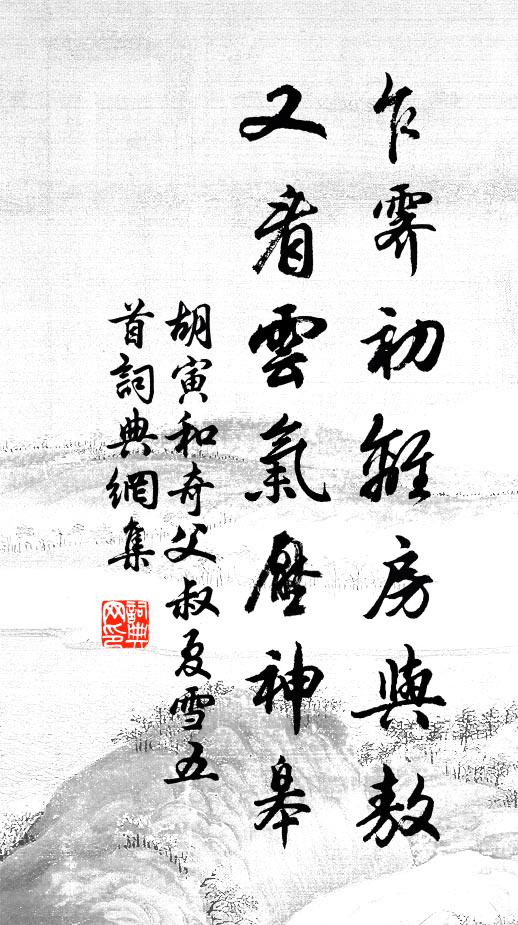 乍霽初離房與敖
又看雲氣壓神皋
胡寅和奇父叔夏雪五
首詞典網集
詞典网印